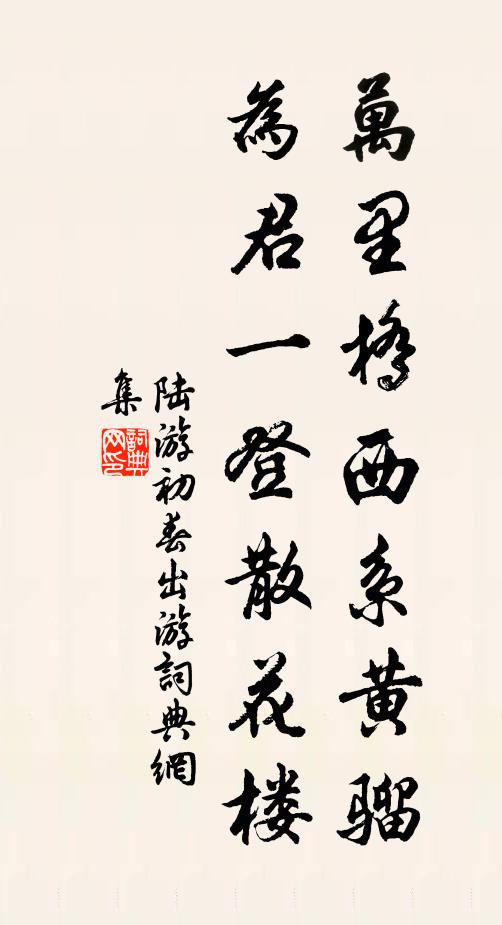 萬里橋西系黄骝
為君一登散花楼
陆游初春出游詞典網
集
詞典網印